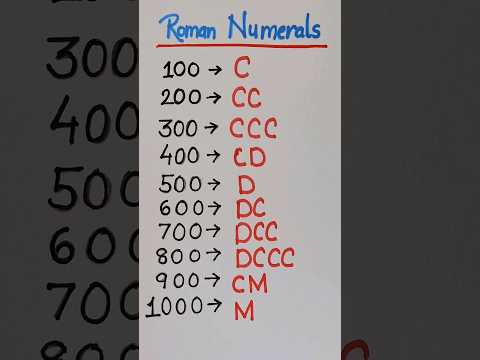 Roman Numerals
100 → C
200 → CC
300 → CCC
400 → CD
500 → D
600 → DC
700 → DCC
800 → DCCC
900 → CM
1000 → M
300
400
500
600
700